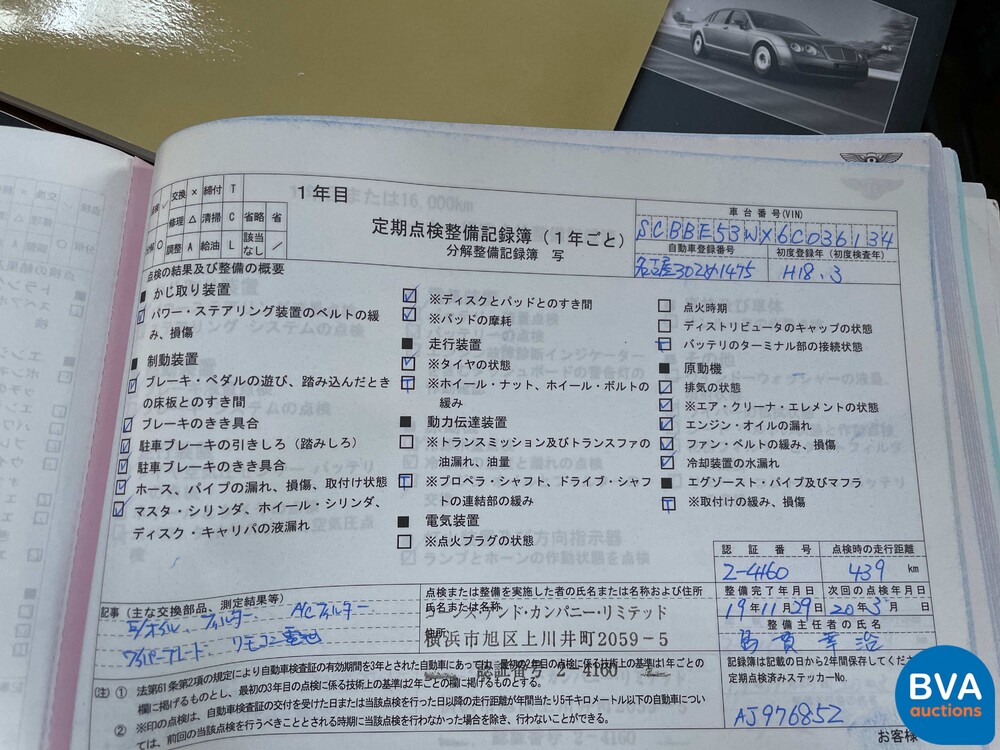 1年目
定期点検整備記録簿（1年ごと）
分解整備記録簿 写
交換 × 締付 T
修理 △ 清掃 C 省略 省
調整 A 給油 L 該当なし ／
車台番号(VIN)
SCBBE53WX6C036134
自動車登録番号 初度登録年（初度検査年）
名古屋302め1475 H18.3
点検の結果及び整備の概要
■ かじ取り装置
パワー・ステアリング装置のベルトの緩み、損傷
■ 制動装置
ブレーキ・ペダルの遊び、踏み込んだときの床板とのすき間
ブレーキのきき具合
駐車ブレーキの引きしろ（踏みしろ）
駐車ブレーキのきき具合
ホース、パイプの漏れ、損傷、取付け状態
マスタ・シリンダ、ホイール・シリンダ、ディスク・キャリパの液漏れ
※ディスクとパッドとのすき間
※パッドの摩耗
■ 走行装置
※タイヤの状態
※ホイール・ナット、ホイール・ボルトの緩み
■ 動力伝達装置
※トランスミッション及びトランスファの油漏れ、油量
※プロペラ・シャフト、ドライブ・シャフトの連結部の緩み
■ 電気装置
※点火プラグの状態
点火時期
ディストリビュータのキャップの状態
バッテリのターミナル部の接続状態
■ 原動機
排気の状態
※エア・クリーナ・エレメントの状態
エンジン・オイルの漏れ
ファン・ベルトの緩み、損傷
冷却装置の水漏れ
■ エグゾースト・パイプ及びマフラ
※取付けの緩み、損傷
認証番号 点検時の走行距離
2-4160 439 km
整備完了年月日 次回の点検年月日
19年11月29日 20年3月 日
整備主任者の氏名
記録簿は記載の日から2年間保存してください
定期点検済みステッカーNo.
AJ976852
お客様
記事（主な交換部品、測定結果等）
E/オイル フィルター ACフィルター
ワイパーブレード リモコン電池
点検または整備を実施した者の氏名または名称および住所
氏名または名称
ーンズアンド・カンパニー・リミテッド
住所
横浜市旭区上川井町2059-5
認証番号 2-4160
（注）① 法第61条第2項の規定により自動車検査証の有効期間を3年とされた自動車にあっては、最初の2年目の点検に係る技術上の基準は1年ごとの
欄に掲げるものとし、最初の3年目の点検に係る技術上の基準は2年ごとの欄に掲げるものとする。
② ※印の点検は、自動車検査証の交付を受けた日または当該点検を行った日以降の走行距離が年間当たり5千キロメートル以下の自動車につい
ては、前回の当該点検を行うべきこととされる時期に当該点検を行わなかった場合を除き、行わないことができる。
BVA
auctions